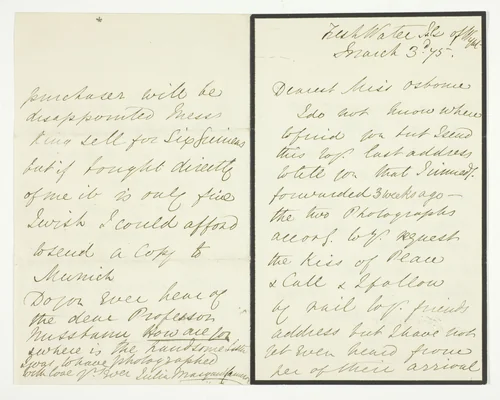 Fresh Water Isle of Wight
March 3d 75.
Dearest Miss Osborne
I do not know where
to find you but I send
this to yr. last address
to tell you that I immedy.
forwarded 3 weeks ago —
the two Photographs
accorg. to yr. request
the Kiss of Peace
& Call & I follow
by rail to yr. friends
address but I have not
yet even heard from
her of their arrival
purchaser will be
disappointed Messrs
sell for Six Guineas
but if bought directly
of me it is only five
I wish I could afford
to send a Copy to
Munich
Do you Ever hear of
the dear Professor
Nussbaum How are you
& where is the handsome
I was to have photographed
with love yr. Ever Julia Margaret Cameron